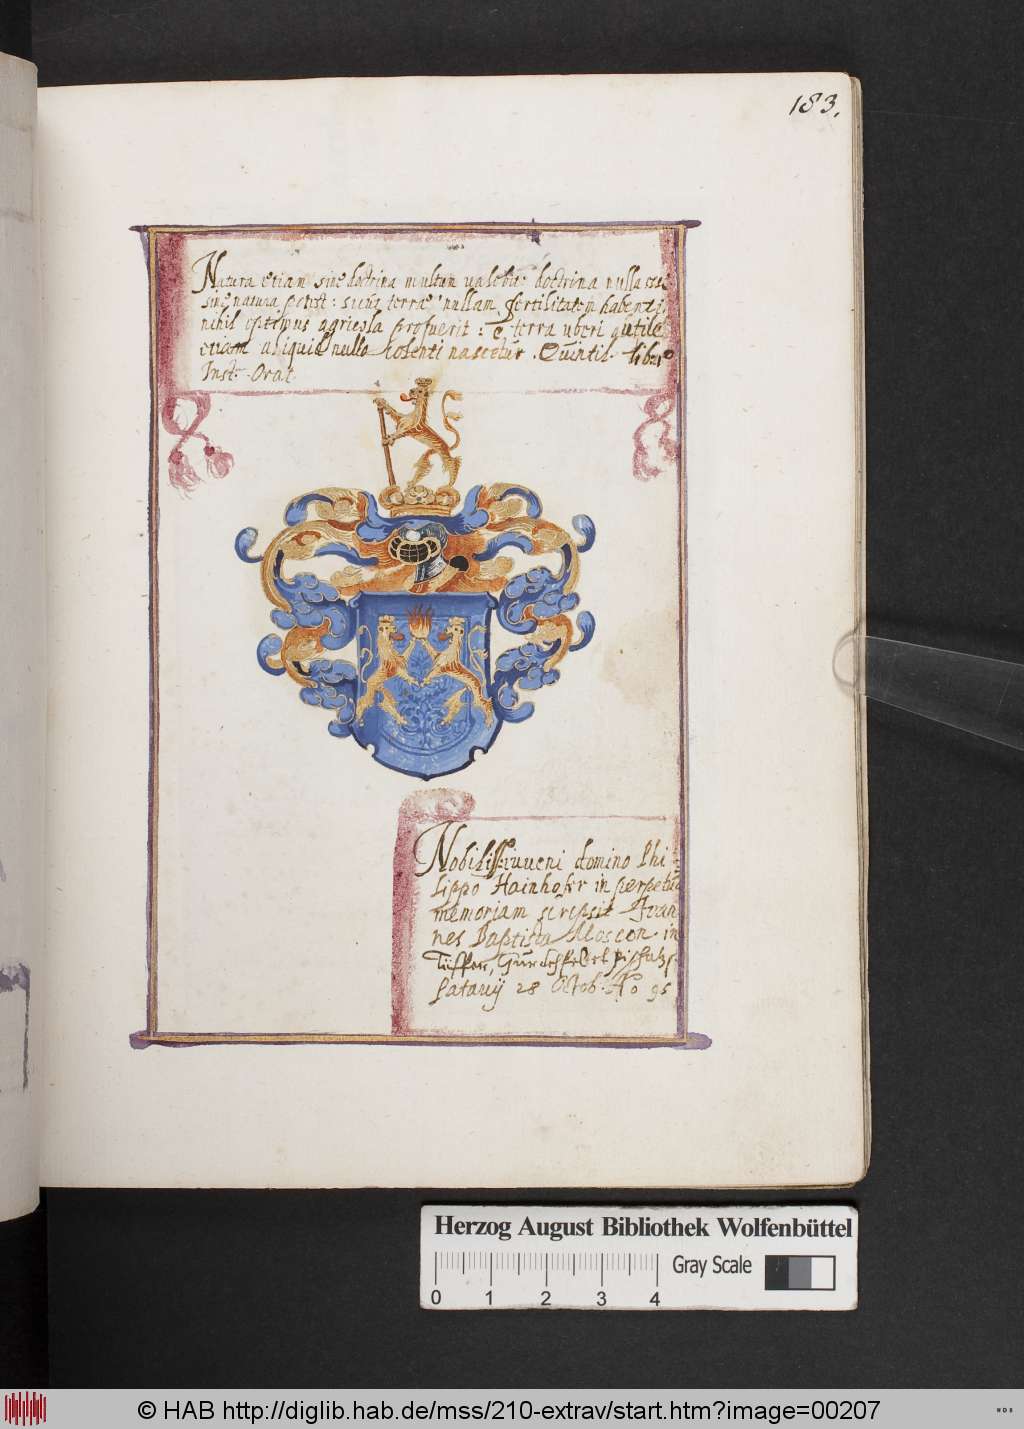 183.
Natura etiam sine doctrina multum valebit: doctrina nulla esse
sine natura potest: sicut terrae nullam fertilitatem habenti
nihil optimus agricola profuerit: è terra uberi utile
etiam aliquid nullo colenti nascetur. Quintil. lib:
Inst: Orat
Nobiliss: iuueni domino Phi
lippo Hainhofer in perpetuã
memoriam scripsit Joan
nes Baptista Moscon in
Patauij 28 Octob. Ao 95
Herzog August Bibliothek Wolfenbüttel
Gray Scale
0 1 2 3 4
© HAB http://diglib.hab.de/mss/210-extrav/start.htm?image=00207